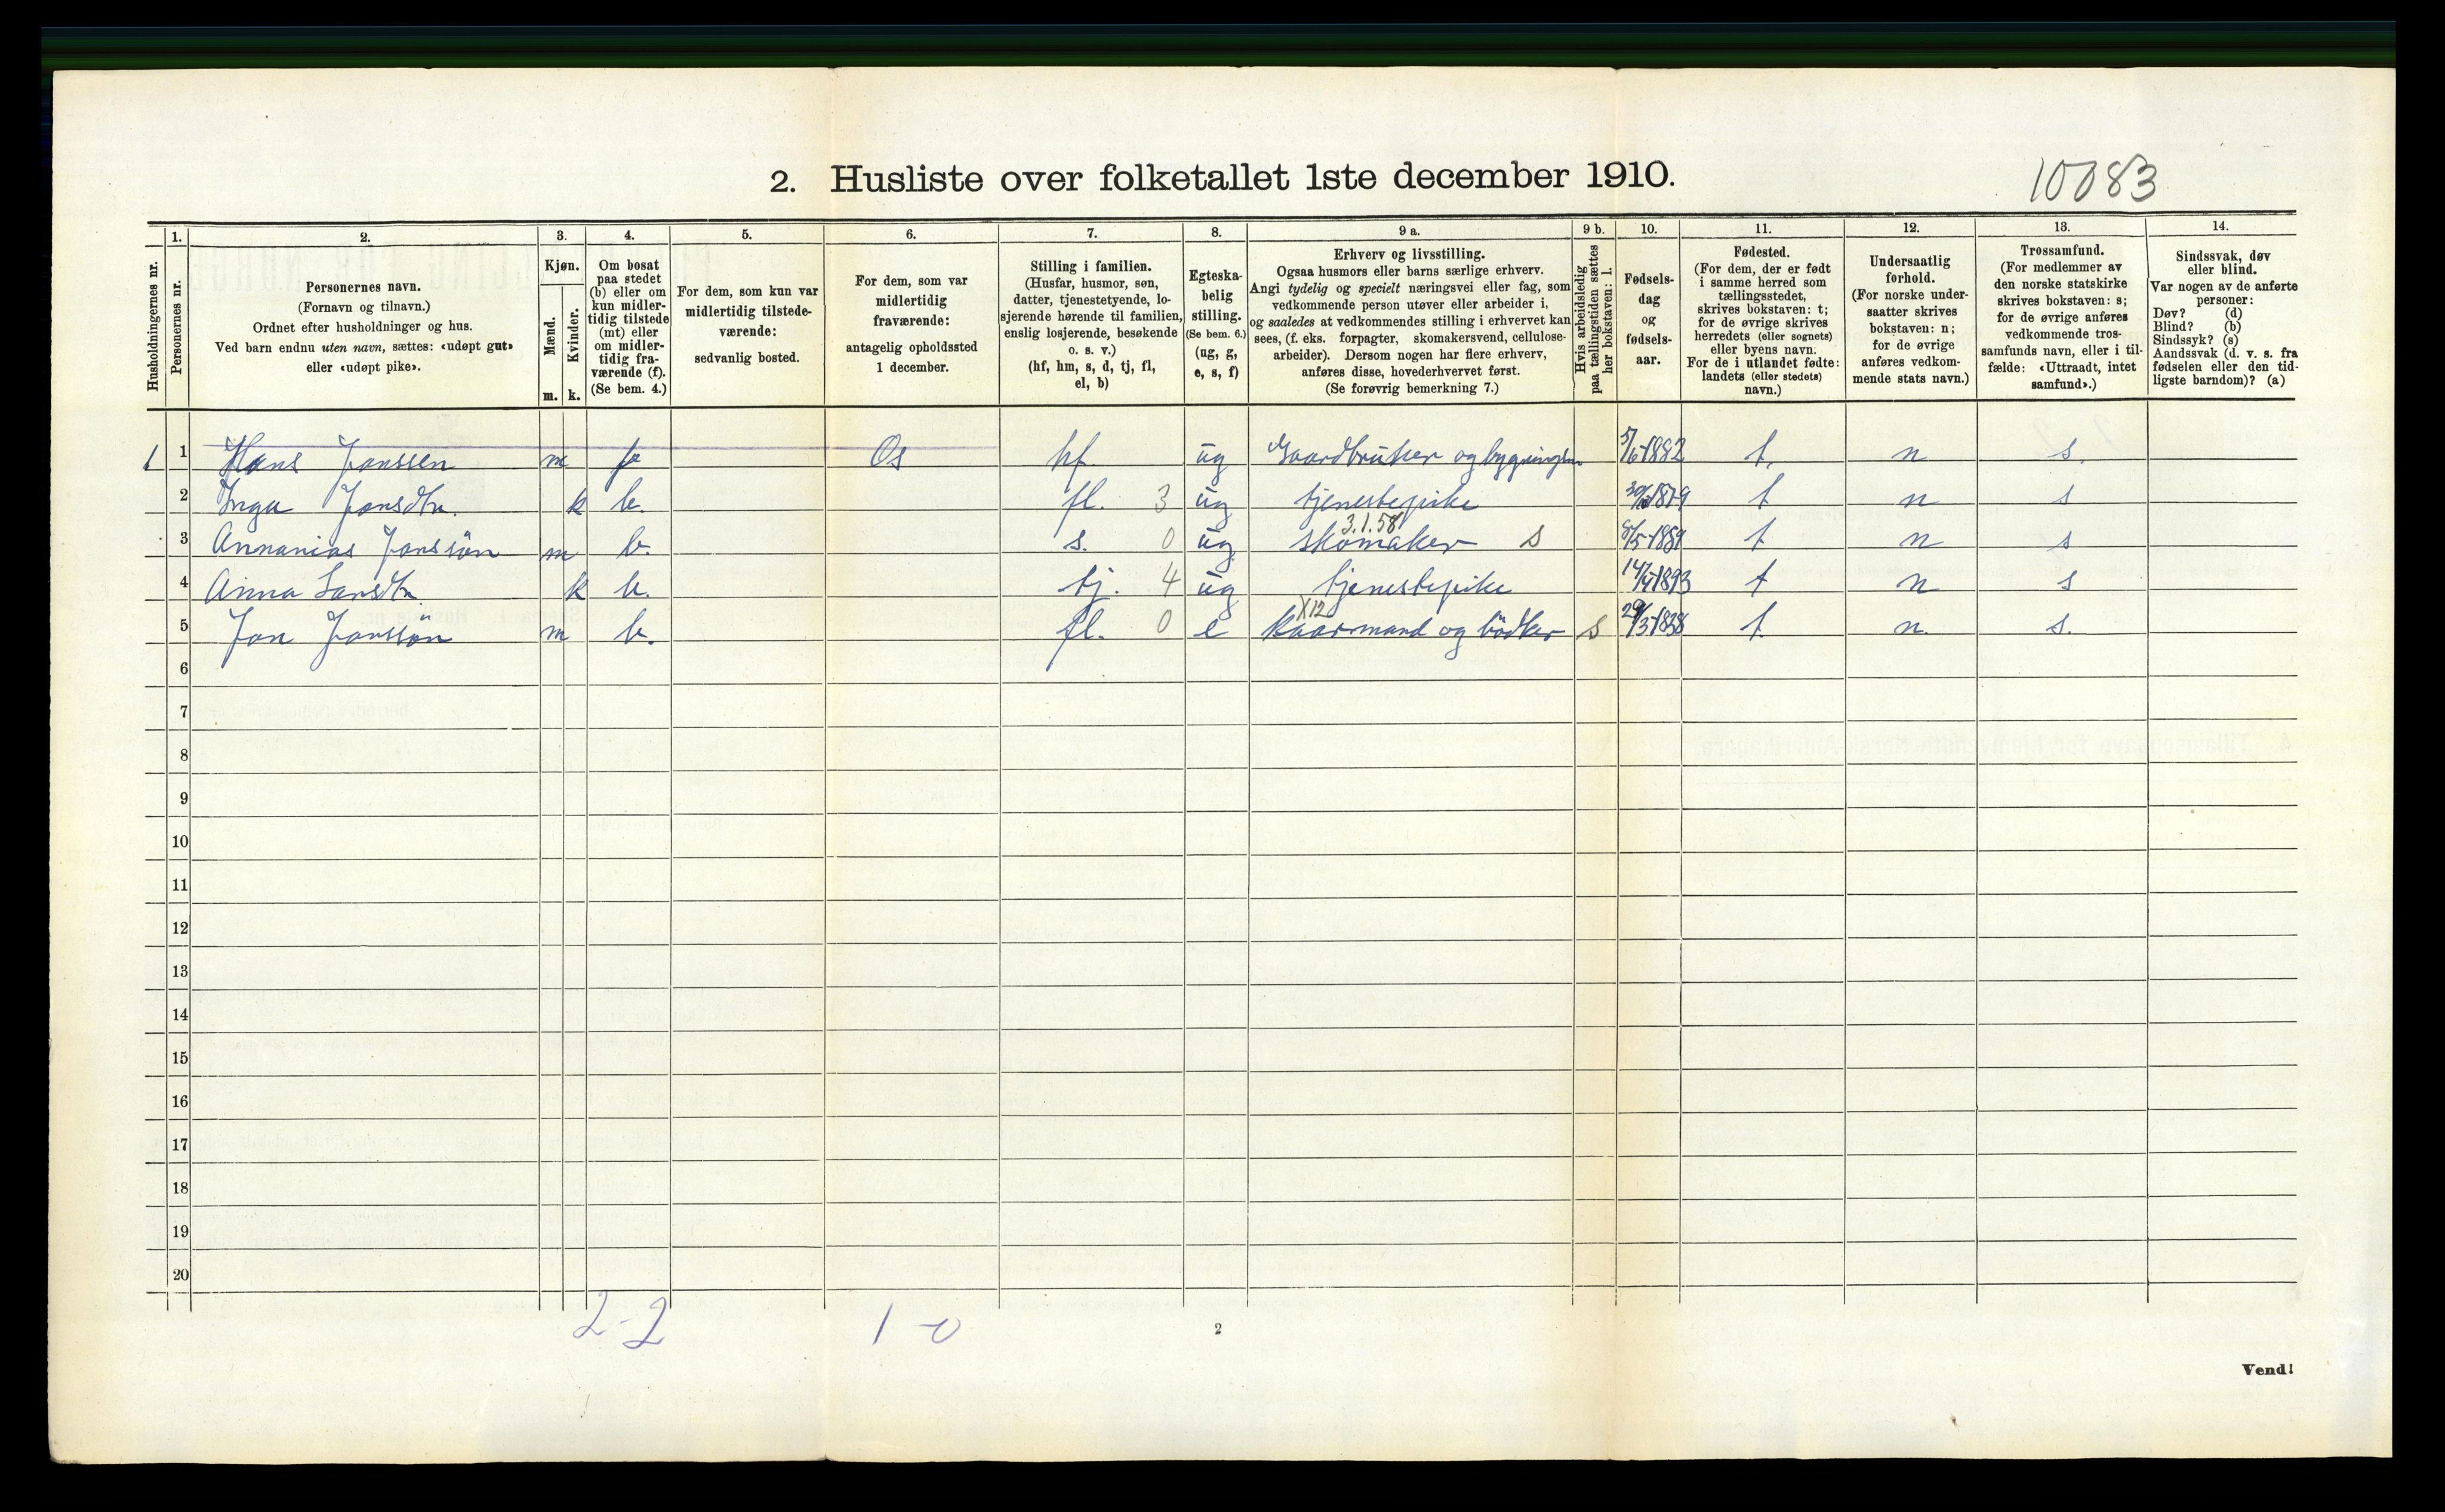 2. Husliste over folketallet 1ste december 1910.
10083
Husholdningernes nr.
1. Personernes nr.
2. Personernes navn.
(Fornavn og tilnavn.)
Ordnet efter husholdninger og hus.
Ved barn endnu uten navn, sættes: «udøpt gut»
eller «udøpt pike».
3. Kjøn.
Mænd. Kvinder.
m. k.
4. Om bosat
paa stedet
(b) eller om
kun midler-
tidig tilstede
(mt) eller
om midler-
tidig fra-
værende (f).
(Se bem. 4.)
5. For dem, som kun var
midlertidig tilstede-
værende:
sedvanlig bosted.
6. For dem, som var
midlertidig
fraværende:
antagelig opholdssted
1 december.
7. Stilling i familien.
(Husfar, husmor, søn,
datter, tjenestetyende, lo-
sjerende hørende til familien,
enslig losjerende, besøkende
o. s. v.)
(hf, hm, s, d, tj, fl,
el, b)
8. Egteska-
belig
stilling.
(Se bem. 6.)
(ug, g,
e, s, f)
9 a. Erhverv og livsstilling.
Ogsaa husmors eller barns særlige erhverv.
Angi tydelig og specielt næringsvei eller fag, som
vedkommende person utøver eller arbeider i,
og saaledes at vedkommendes stilling i erhvervet kan
sees, (f. eks. forpagter, skomakersvend, cellulose-
arbeider). Dersom nogen har flere erhverv,
anføres disse, hovederhvervet først.
(Se forøvrig bemerkning 7.)
9 b. Hvis arbeidsledig
paa tællingstiden sættes
her bokstaven: l.
10. Fødsels-
dag
og
fødsels-
aar.
11. Fødested.
(For dem, der er født
i samme herred som
tællingsstedet,
skrives bokstaven: t;
for de øvrige skrives
herredets (eller sognets)
eller byens navn.
For de i utlandet fødte:
landets (eller stedets)
navn.)
12. Undersaatlig
forhold.
(For norske under-
saatter skrives
bokstaven: n;
for de øvrige
anføres vedkom-
mende stats navn.)
13. Trossamfund.
(For medlemmer av
den norske statskirke
skrives bokstaven: s;
for de øvrige anføres
vedkommende tros-
samfunds navn, eller i til-
fælde: «Uttraadt, intet
samfund».)
14. Sindssvak, døv
eller blind.
Var nogen av de anførte
personer:
Døv? (d)
Blind? (b)
Sindssyk? (s)
Aandssvak (d. v. s. fra
fødselen eller den tid-
ligste barndom)? (a)
1 1 Hans Janssen m f Os hf. ug Gaardbruker og 5/6 1882 t. n s.
2 Inga Jansdtr. k b. fl. 3 ug tjenestepike 1879 t n s
3.1.58
3 Annanias Janssön m b. s. 0 ug skomaker s 8/5-1889 t n s
4 Anna Larsdtr. k b. tj. 4 ug tjenestepike 1893 t n s
X12
5 Jan Janssön m b. fl. 0 e kaarmand og bödker s 29/3-1838 t. n. s.
6
7
8
9
10
11
12
13
14
15
16
17
18
19
20
2-2 1-0
2
Vend!